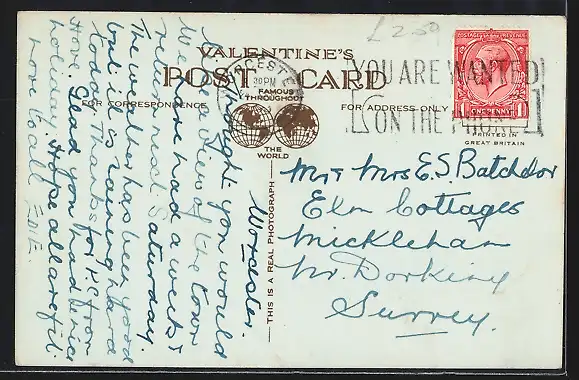 £2.50
VALENTINE'S
POST CARD
FAMOUS THROUGHOUT
THE WORLD
FOR CORRESPONDENCE
FOR ADDRESS ONLY
THIS IS A REAL PHOTOGRAPH
PRINTED IN
GREAT BRITAIN
POSTAGE & REVENUE
ONE PENNY
YOU ARE WANTED
ON THE PHONE
Worcester.
Thought you would
like a view of the town
We have had a week &
return next Saturday.
The weather has been good
but it is raining hard
today. Thanks for P.C. from
Hove. Glad you had a nice
holiday. Hope all are fit.
Love to all
Mr & Mrs E.S. Batchelor
Elm Cottages
Mickleham
Nr. Dorking
Surrey.